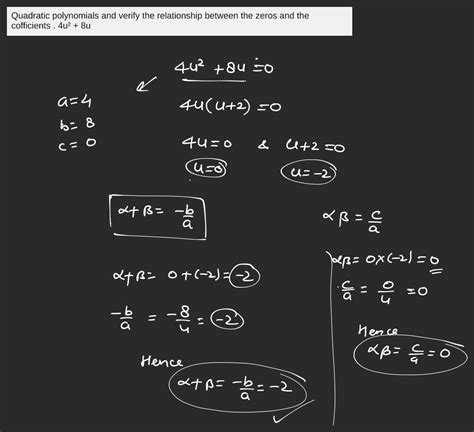 Quadratic polynomials and verify the relationship between the zeros and the
cofficients . 4u² + 8u
4u² + 8u = 0
a = 4
b = 8
c = 0
4u(u+2) = 0
4u = 0 & u+2 = 0
u = 0 u = -2
α + β = -b/a
αβ = c/a
α + β = 0 + (-2) = -2
-b/a = -8/4 = -2
Hence
α + β = -b/a = -2
αβ = 0 × (-2) = 0
c/a = 0/4 = 0
Hence
αβ = c/a = 0